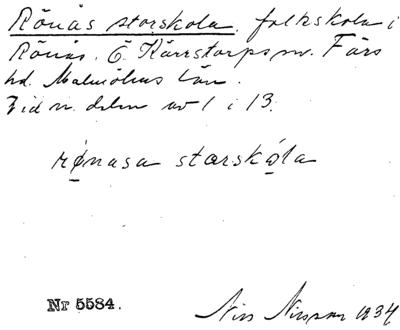 Rönås storskola, folkskola i
Rönås, Ö. Kärrstorps sn. Färs
hd. Malmöhus län.
Vid n. delen av 1 i 13.
rønasa starskåla
Nr 5584.
Nils Nilsson 1934